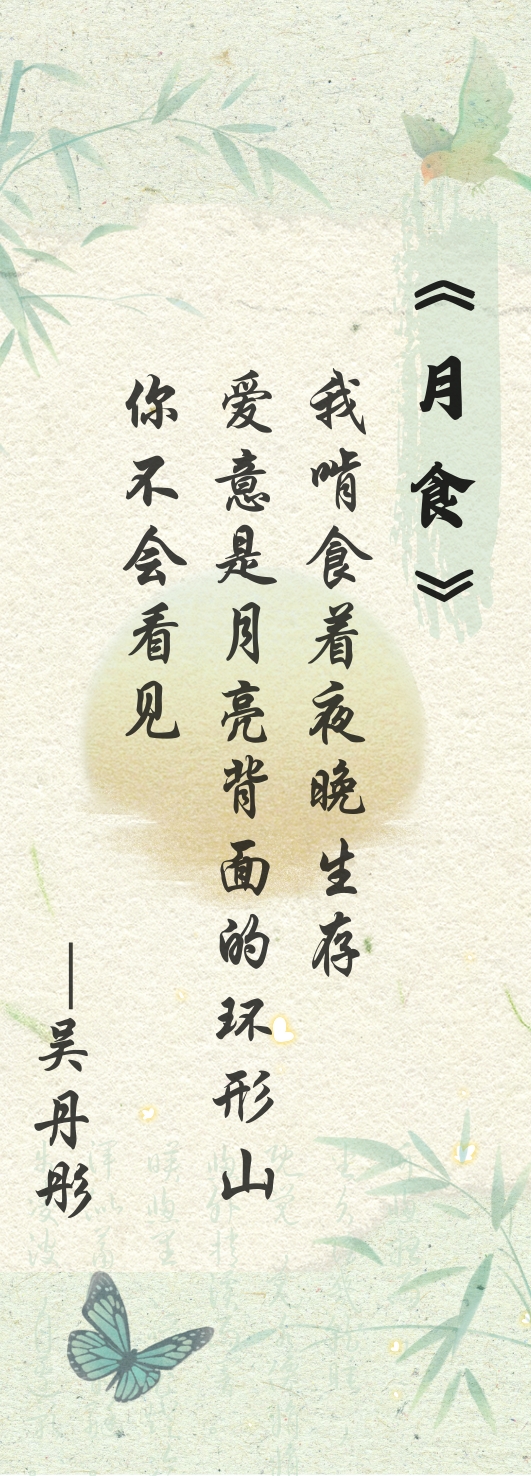 《月食》
我啃食着夜晚生存
爱意是月亮背面的环形山
你不会看见
—吴丹彤